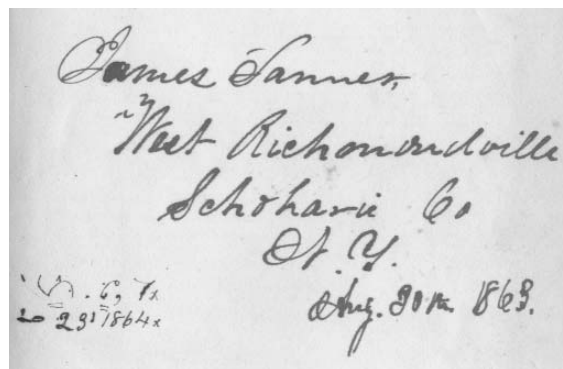 James Tanner,
West Richmondville
Schoharie Co
N. Y.
Aug. 30th 1863.
23 1864